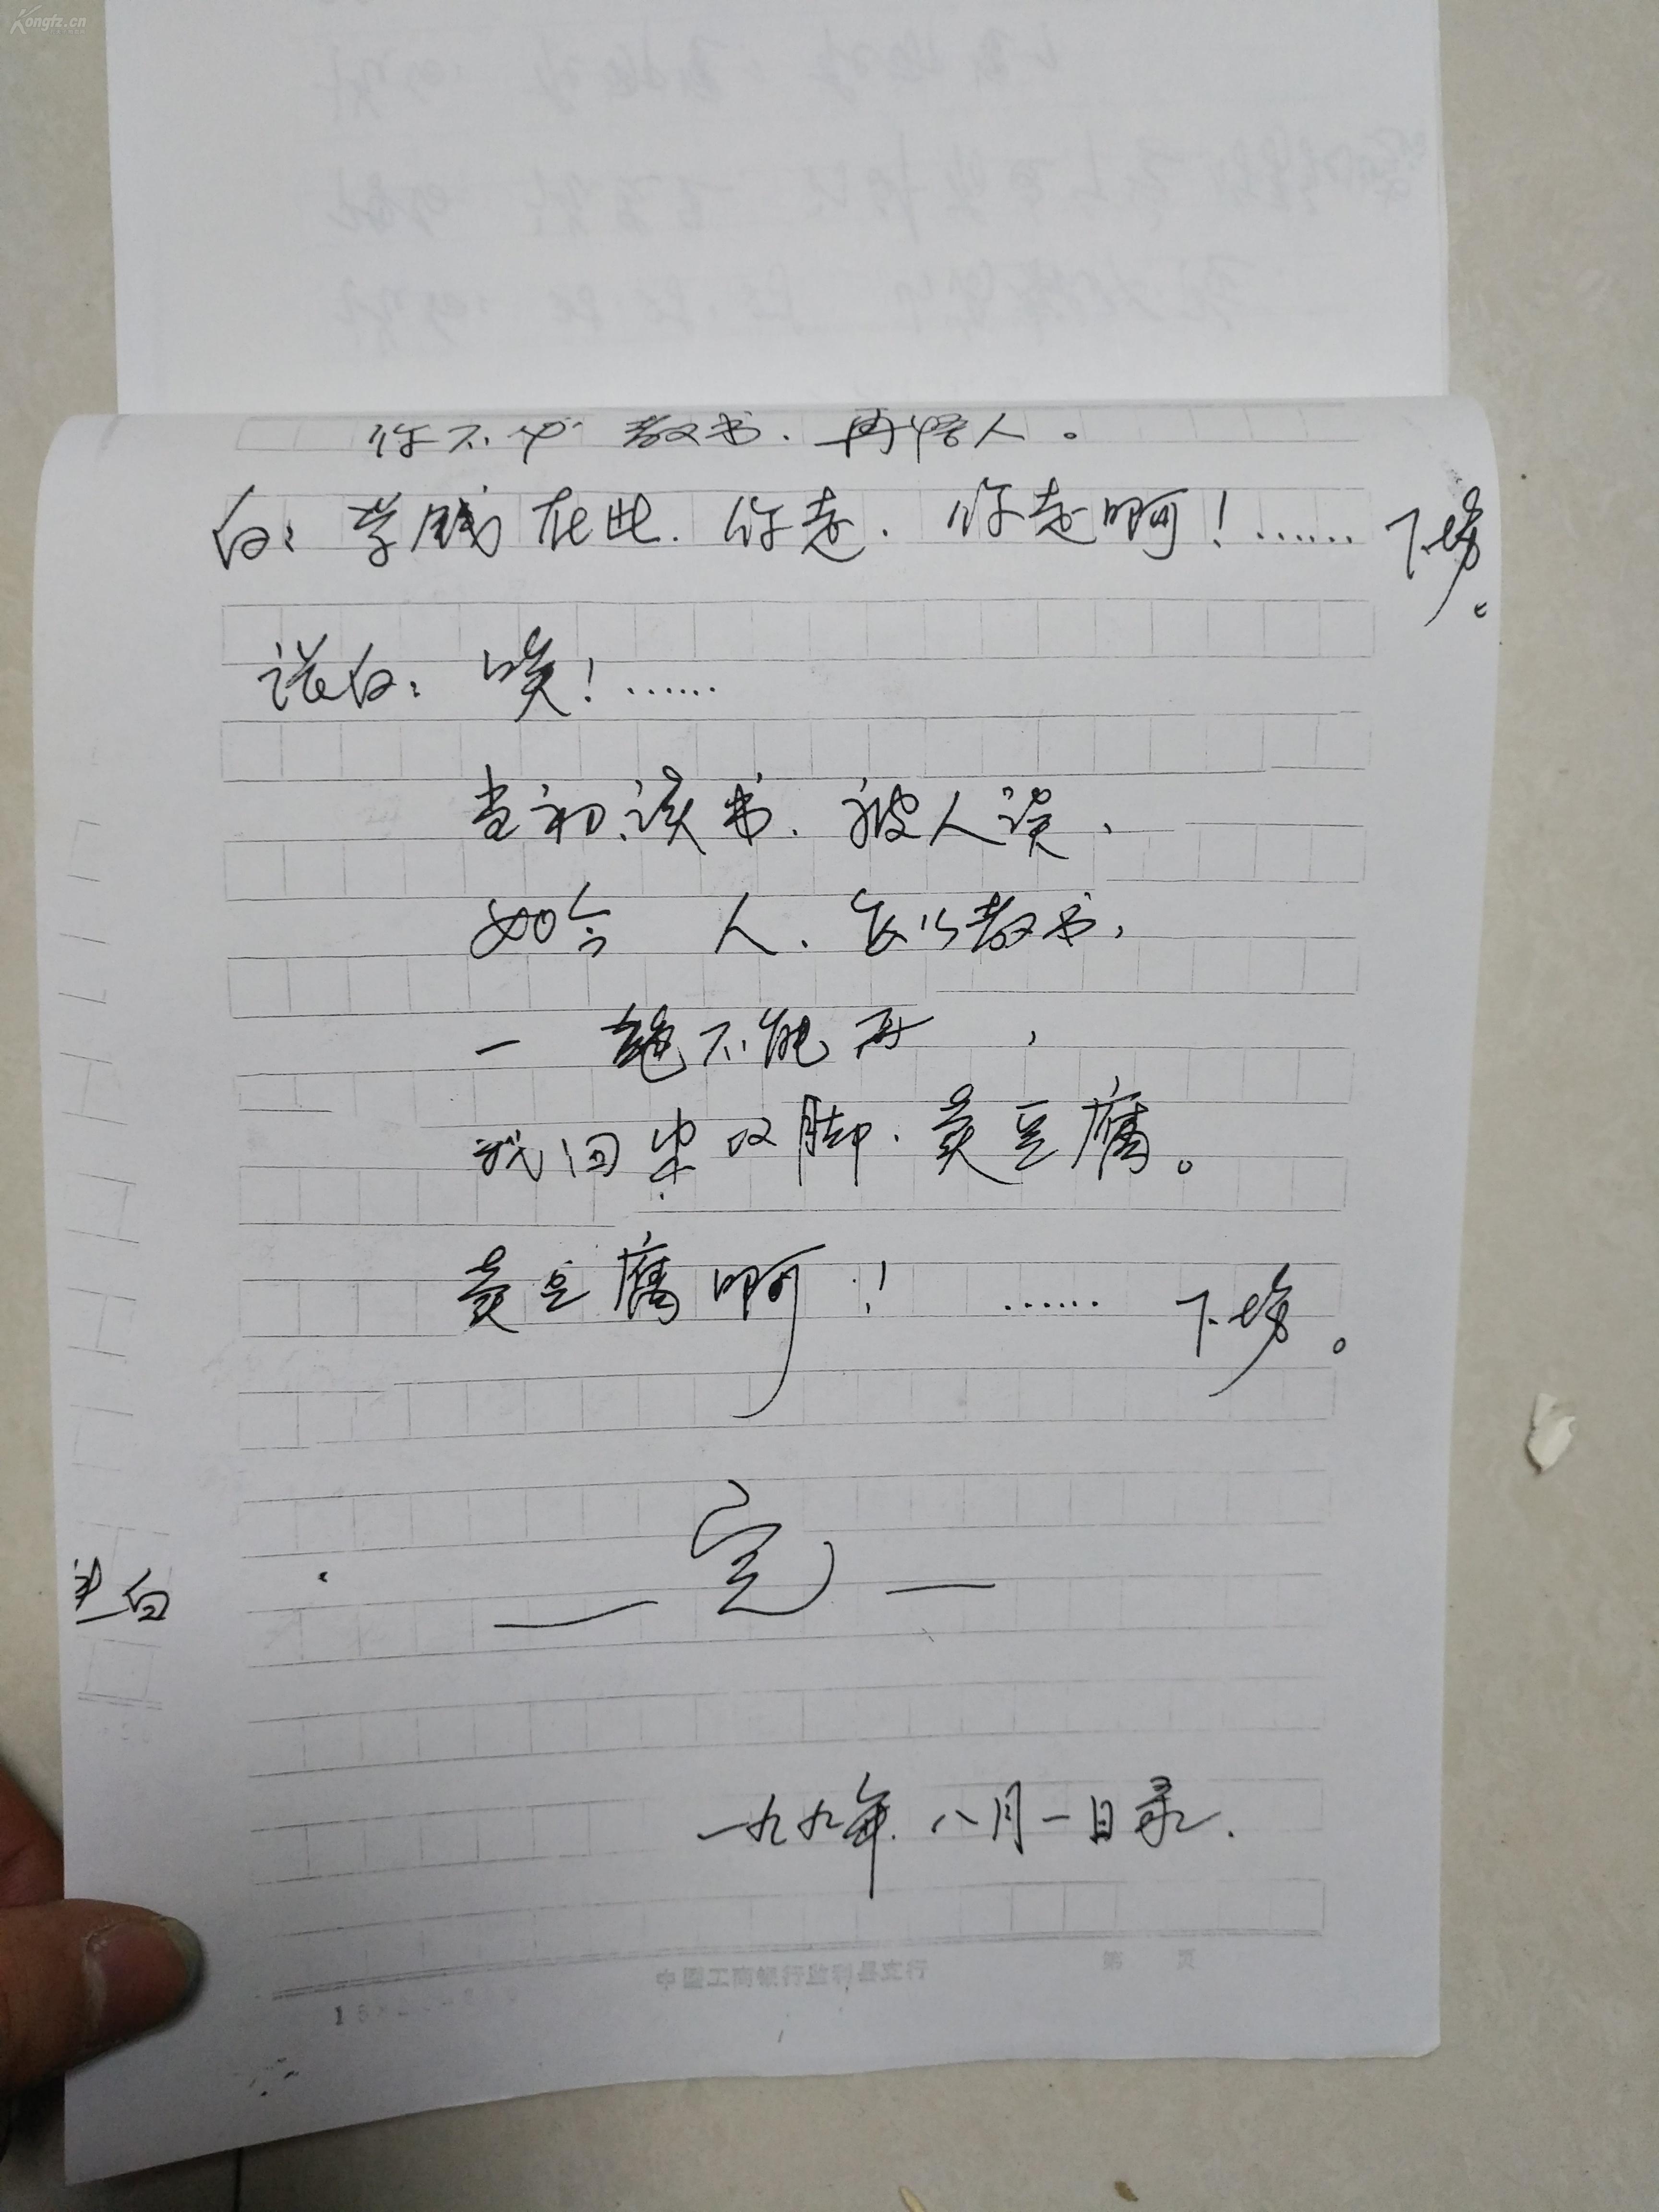 Kongfz.cn
你不必教书.再怪人。
白:学钱在此.你走.你走啊!……下场。
诺白:唉!……
当初读书.被人误、
如今 人.怎么教书,
一 不能再 ,
我回 双脚.卖豆腐。
卖豆腐啊!……下场。
—完—
道白
一九九年.八月一日录.
中国工商银行监利县支行 第 页